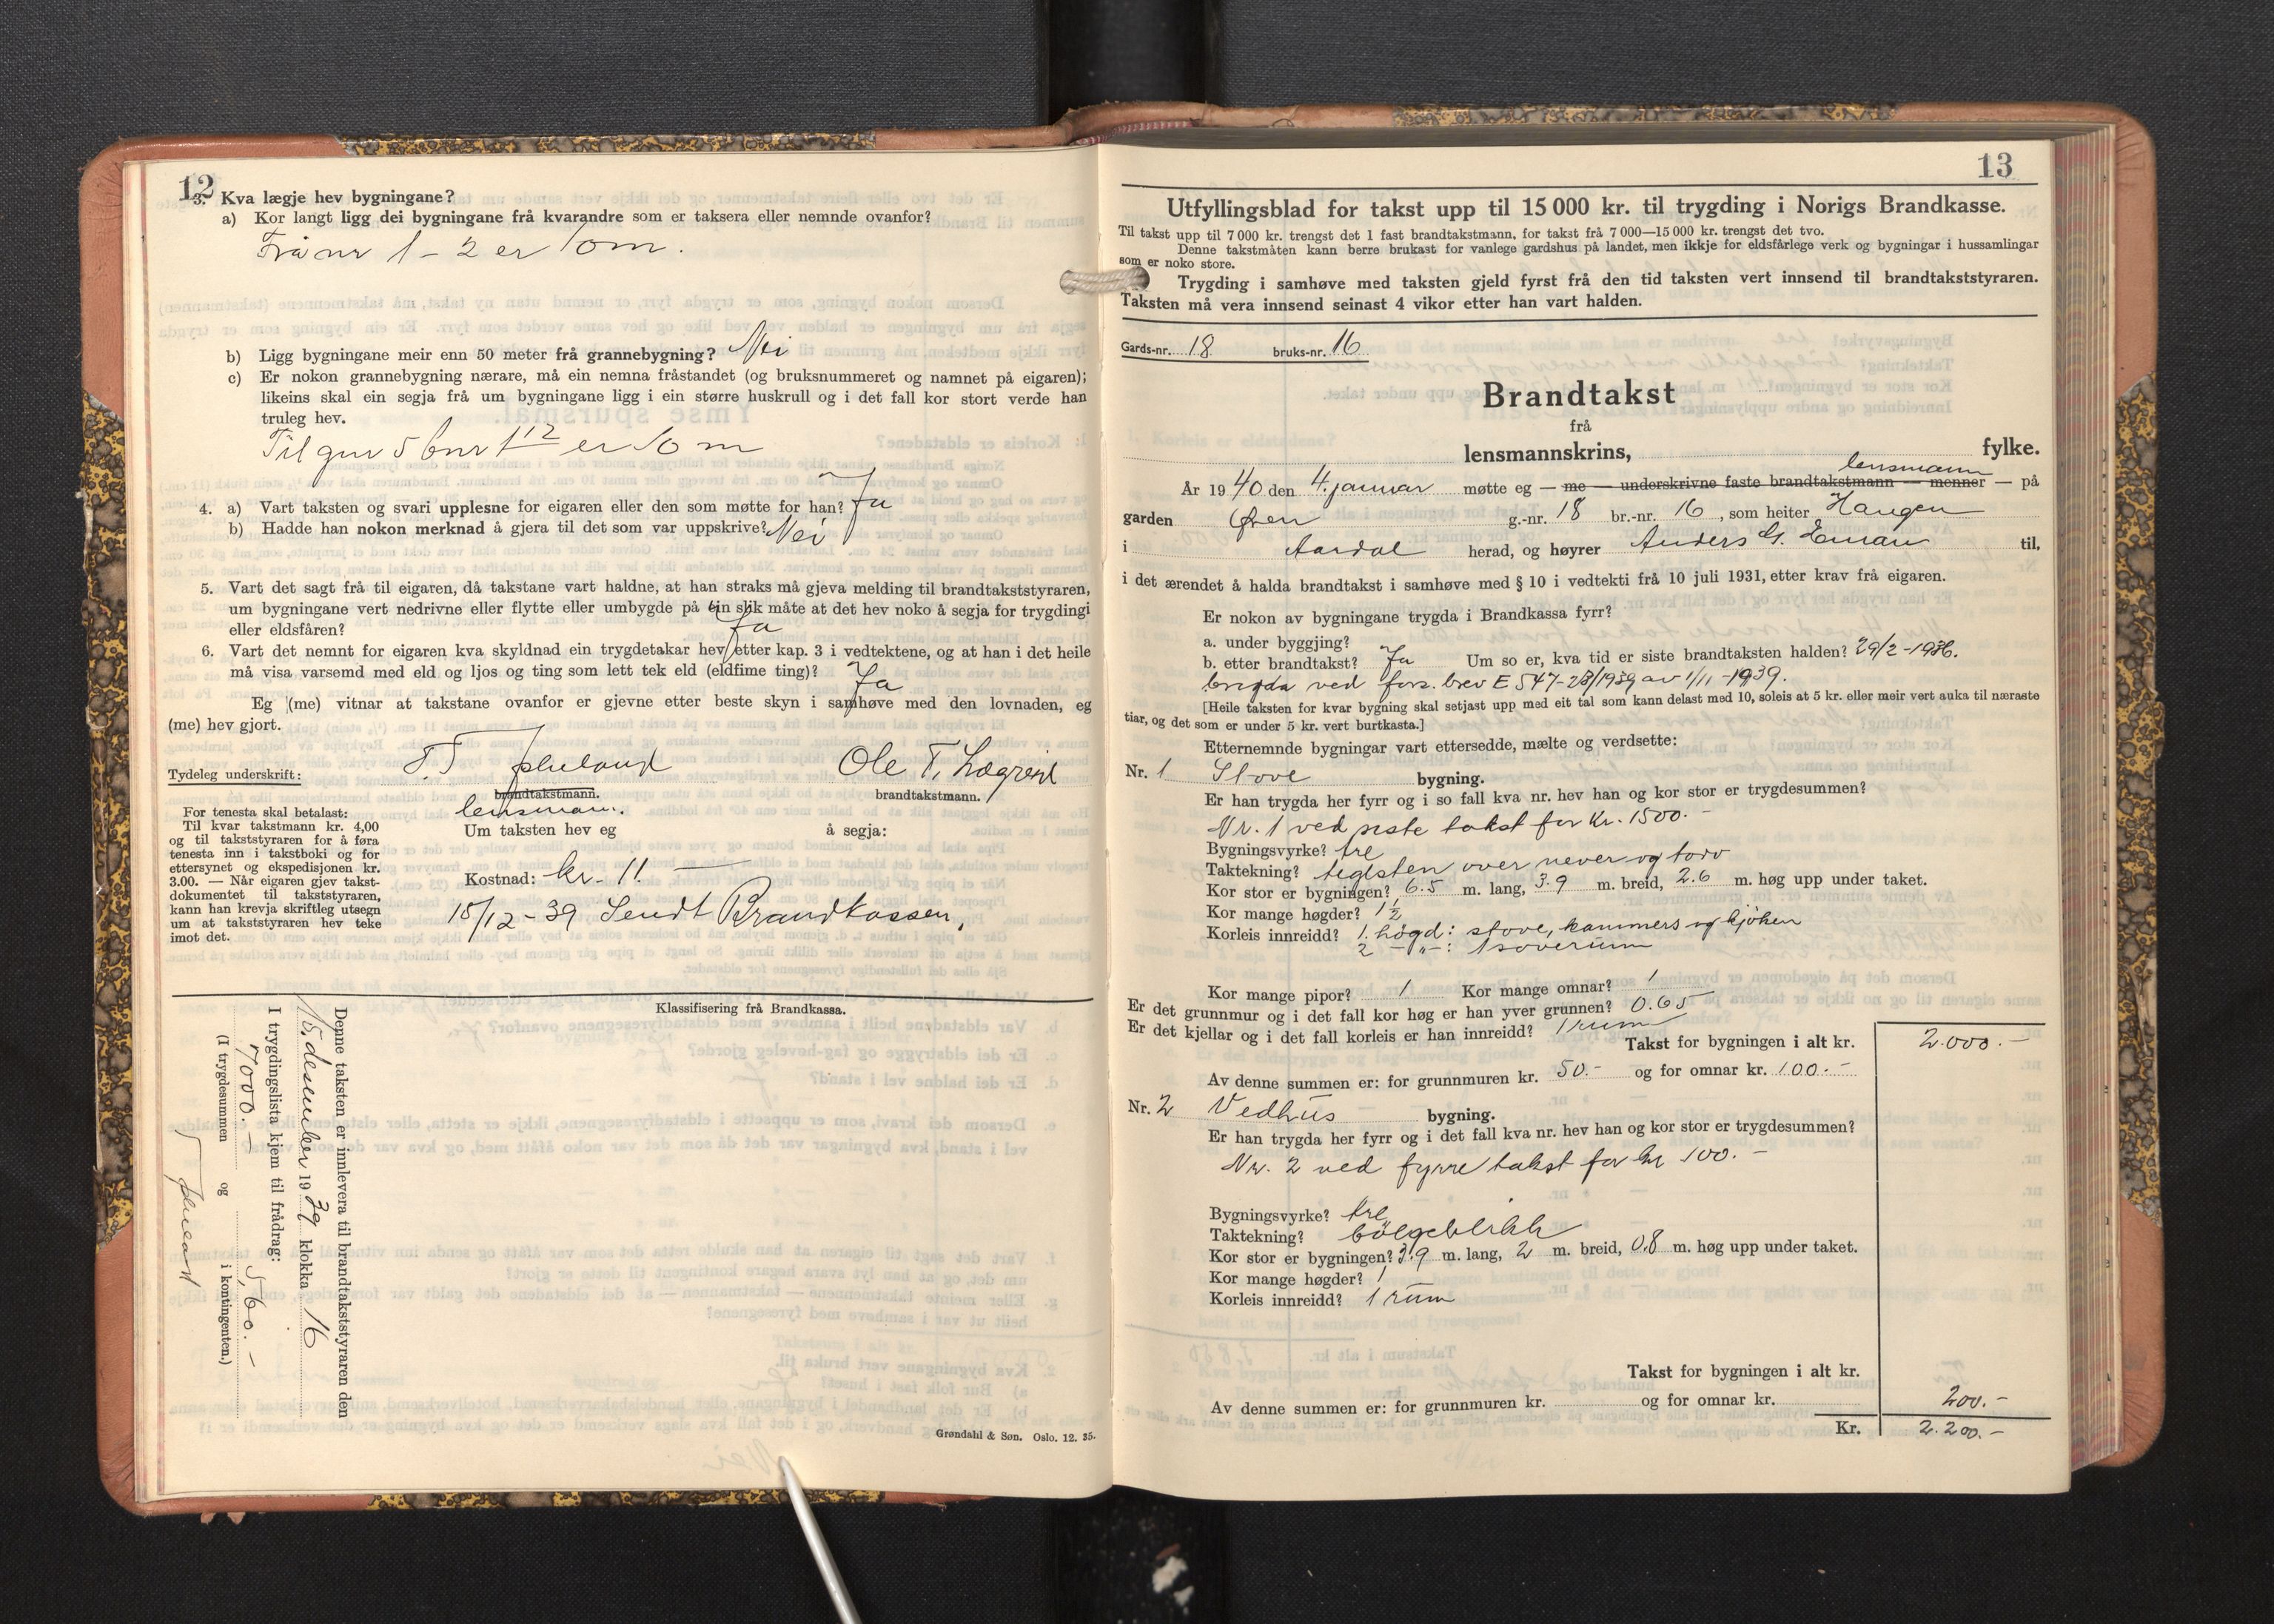 12
3. Kva lægje hev bygningane?
a) Kor langt ligg dei bygningane frå kvarandre som er taksera eller nemnde ovanfor?
Frå nr 1 - 2 er 10 m.
b) Ligg bygningane meir enn 50 meter frå grannebygning? Nei
c) Er nokon grannebygning nærare, må ein nemna fråstandet (og bruksnummeret og namnet på eigaren);
likeins skal ein segja frå um bygningane ligg i ein større huskrull og i det fall kor stort verde han
truleg hev.
Til gnr 5 bnr 1 12 er 10 m
4. a) Vart taksten og svari upplesne for eigaren eller den som møtte for han? Ja
b) Hadde han nokon merknad å gjera til det som var uppskrive? Nei
5. Vart det sagt frå til eigaren, då takstane vart haldne, at han straks må gjeva melding til brandtakststyraren,
um bygningane vert nedrivne eller flytte eller umbygde på ein slik måte at det hev noko å segja for trygdingi
eller eldsfåren? Ja
6. Vart det nemnt for eigaren kva skyldnad ein trygdetakar hev etter kap. 3 i vedtektene, og at han i det heile
må visa varsemd med eld og ljos og ting som lett tek eld (eldfime ting)? Ja
Eg (me) vitnar at takstane ovanfor er gjevne etter beste skyn i samhøve med den lovnaden, eg
(me) hev gjort.
Tydeleg underskrift: Ole T. Lægreid
brandtakstmann. brandtakstmann.
lensmann.
For tenesta skal betalast:
Til kvar takstmann kr. 4,00
og til takststyraren for å føra
tenesta inn i takstboki og for
ettersynet og ekspedisjonen kr.
3.00. — Når eigaren gjev takst-
dokumentet til takststyraren,
kann han krevja skriftleg utsegn
um at takststyraren hev teke
imot det.
Um taksten hev eg å segja:
Kostnad: kr. 11. —
15/12-39 Sendt Brandkassen.
Klassifisering frå Brandkassa.
Denne taksten er innlevera til brandtakststyraren den
15. desember 1939 klokka 16
I trygdingslista kjem til frådrag:
7000.— 5,60.—
(I trygdesummen og i kontingenten.)
Grøndahl & Søn. Oslo. 12. 35.
13
Utfyllingsblad for takst upp til 15 000 kr. til trygding i Norigs Brandkasse.
Til takst upp til 7 000 kr. trengst det 1 fast brandtakstmann, for takst frå 7 000—15 000 kr. trengst det tvo.
Denne takstmåten kann berre brukast for vanlege gardshus på landet, men ikkje for eldsfårlege verk og bygningar i hussamlingar
som er noko store.
Trygding i samhøve med taksten gjeld fyrst frå den tid taksten vert innsend til brandtakststyraren.
Taksten må vera innsend seinast 4 vikor etter han vart halden.
Gards-nr. 18 bruks-nr. 16
Brandtakst
frå
lensmannskrins, fylke.
lensmann
År 1940 den 4. januar møtte eg — me — underskrivne faste brandtakstmann — menner — på
garden Øren g.-nr. 18 br.-nr. 16, som heiter Haugen
i Aardal herad, og høyrer Anders G. til,
i det ærendet å halda brandtakst i samhøve med § 10 i vedtekti frå 10 juli 1931, etter krav frå eigaren.
Er nokon av bygningane trygda i Brandkassa fyrr?
a. under byggjing?
b. etter brandtakst? Ja Um so er, kva tid er siste brandtaksten halden? 29/2-1936.
brigda ved fors. brev E 547-23/1939 av 1/11-1939.
[Heile taksten for kvar bygning skal setjast upp med eit tal som kann delast med 10, soleis at 5 kr. eller meir vert auka til næraste
tiar, og det som er under 5 kr. vert burtkasta.]
Etternemnde bygningar vart ettersedde, mælte og verdsette:
Nr. 1 Stove bygning.
Er han trygda her fyrr og i so fall kva nr. hev han og kor stor er trygdesummen?
Nr. 1 ved siste takst for kr. 1500.-
Bygningsvyrke? tre
Taktekning? teglsten over never og torv
Kor stor er bygningen? 6.5 m. lang, 3.9 m. breid, 2.6 m. høg upp under taket.
Kor mange høgder? 1 ½
Korleis innreidd? 1. høgd: stove, kammers og kjøken
2 -"-: 1 soverum
Kor mange pipor? 1 Kor mange omnar? 1
Er det grunnmur og i det fall kor høg er han yver grunnen? 0.65
Er det kjellar og i det fall korleis er han innreidd? 1 rum
Takst for bygningen i alt kr. 2.000.-
Av denne summen er: for grunnmuren kr. 50.- og for omnar kr. 100.-
Nr. 2 Vedhus bygning.
Er han trygda her fyrr og i det fall kva nr. hev han og kor stor er trygdesummen?
Nr. 2 ved fyrre takst for kr 100.-
Bygningsvyrke? tre
Taktekning? bölgeblikk
Kor stor er bygningen? 3.9 m. lang, 2 m. breid, 0.8 m. høg upp under taket.
Kor mange høgder? 1
Korleis innreidd? 1 rum
Takst for bygningen i alt kr.
Av denne summen er: for grunnmuren kr. og for omnar kr. 200.-
Kr. 2.200.-